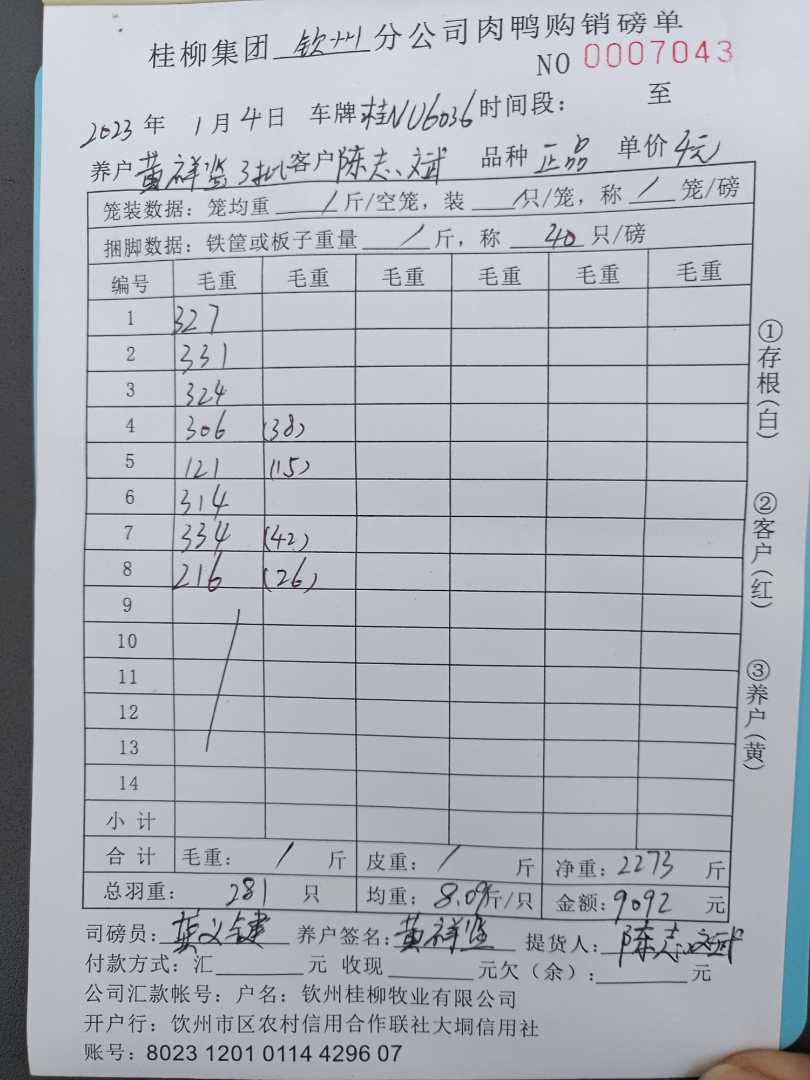 桂柳集团 钦州 分公司肉鸭购销磅单
NO 0007043
2023 年 1 月 4 日 车牌 桂NU6036 时间段： 至
养户 黄祥监 3批 客户 陈志斌 品种 正品 单价 4元
笼装数据：笼均重 / 斤/空笼，装 / 只/笼，称 / 笼/磅
捆脚数据：铁筐或板子重量 / 斤，称 40 只/磅
编号 毛重 毛重 毛重 毛重 毛重 毛重
1 327
2 331
3 324
4 306 (38)
5 121 (15)
6 314
7 334 (42)
8 216 (26)
9
10
11
12
13
14
小 计
合 计 毛重： / 斤 皮重： / 斤 净重：2273 斤
总羽重： 281 只 均重：8.09 斤/只 金额：9092 元
司磅员： 养户签名：黄祥监 提货人：陈志斌
付款方式：汇 元 收现 元欠（余）： 元
公司汇款帐号：户名：钦州桂柳牧业有限公司
开户行：钦州市区农村信用合作联社大垌信用社
账号：8023 1201 0114 4296 07
①存根(白)
②客户(红)
③养户(黄)